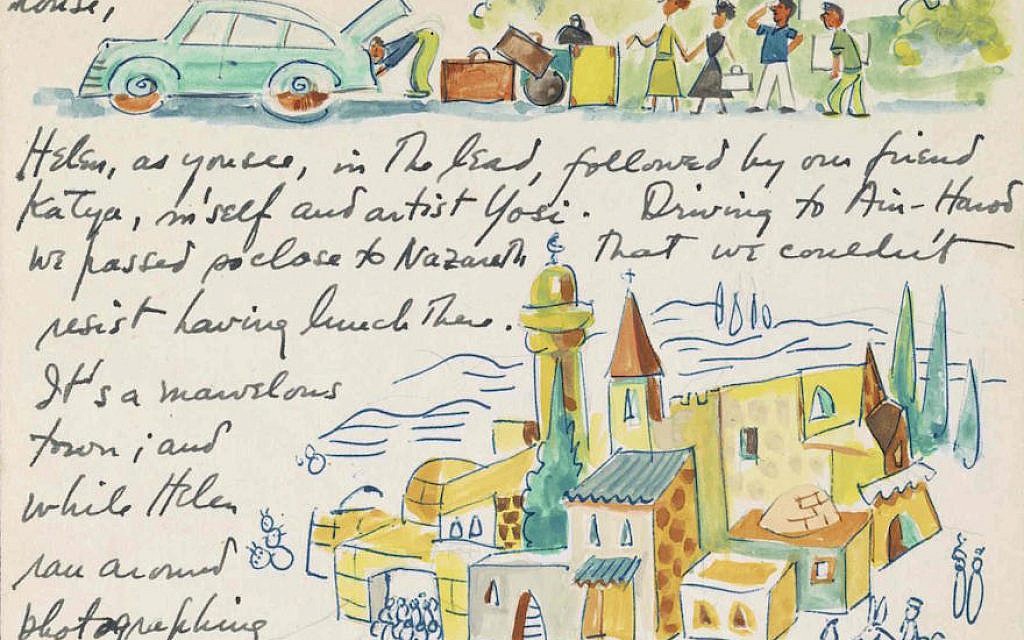 house,
Helen, as you see, in the lead, followed by our friend
Katya, m'self and artist Yosi. Driving to Ain-Harod
we passed so close to Nazareth that we couldn't
resist having lunch there.
It's a marvelous
town; and
while Helen
ran around
photographing